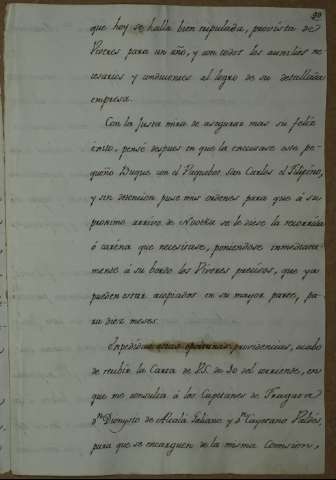 que hoy se halla bien equipada, provista de
Viveres para un año, y con todos los auxilios ne-
cesarios y conducentes al logro de su detallada
empresa.
Con la justa mira de asegurar mas su feliz
exito, pensé despues en que la executase este pe-
queño Buque con el Paquebot San Carlos el Filipino,
y sin detencion puse mis ordenes para que á su
proximo arrivo de Nootka se le diese la recorrida
ó carena que necesitase, poniendose inmediata-
mente á su bordo los Viveres precisos, que ya
pueden estar acopiados en su mayor parte, pa-
ra diez meses.
Expedidas estas oportunas providencias, acabo
de recibir la Carta de V.S. de 30 del corriente, en
que me consulta á los Capitanes de Fragata
Dn. Dionysio de Alcalá Galiano y Dn. Cayetano Valdés,
para que se encarguen de la misma Comision,